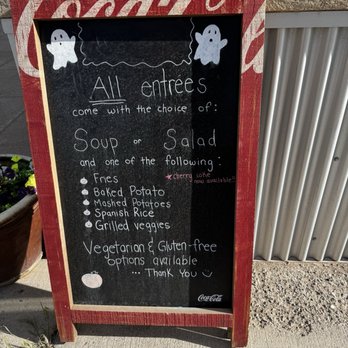 Coca-Cola
All entrées
come with the choice of:
Soup or Salad
and one of the following:
Fries
Baked Potato
Mashed Potatoes
Spanish Rice
Grilled veggies
★ Cherry coke
now available!!
Vegetarian & Gluten-free
options available
... Thank You
Coca-Cola